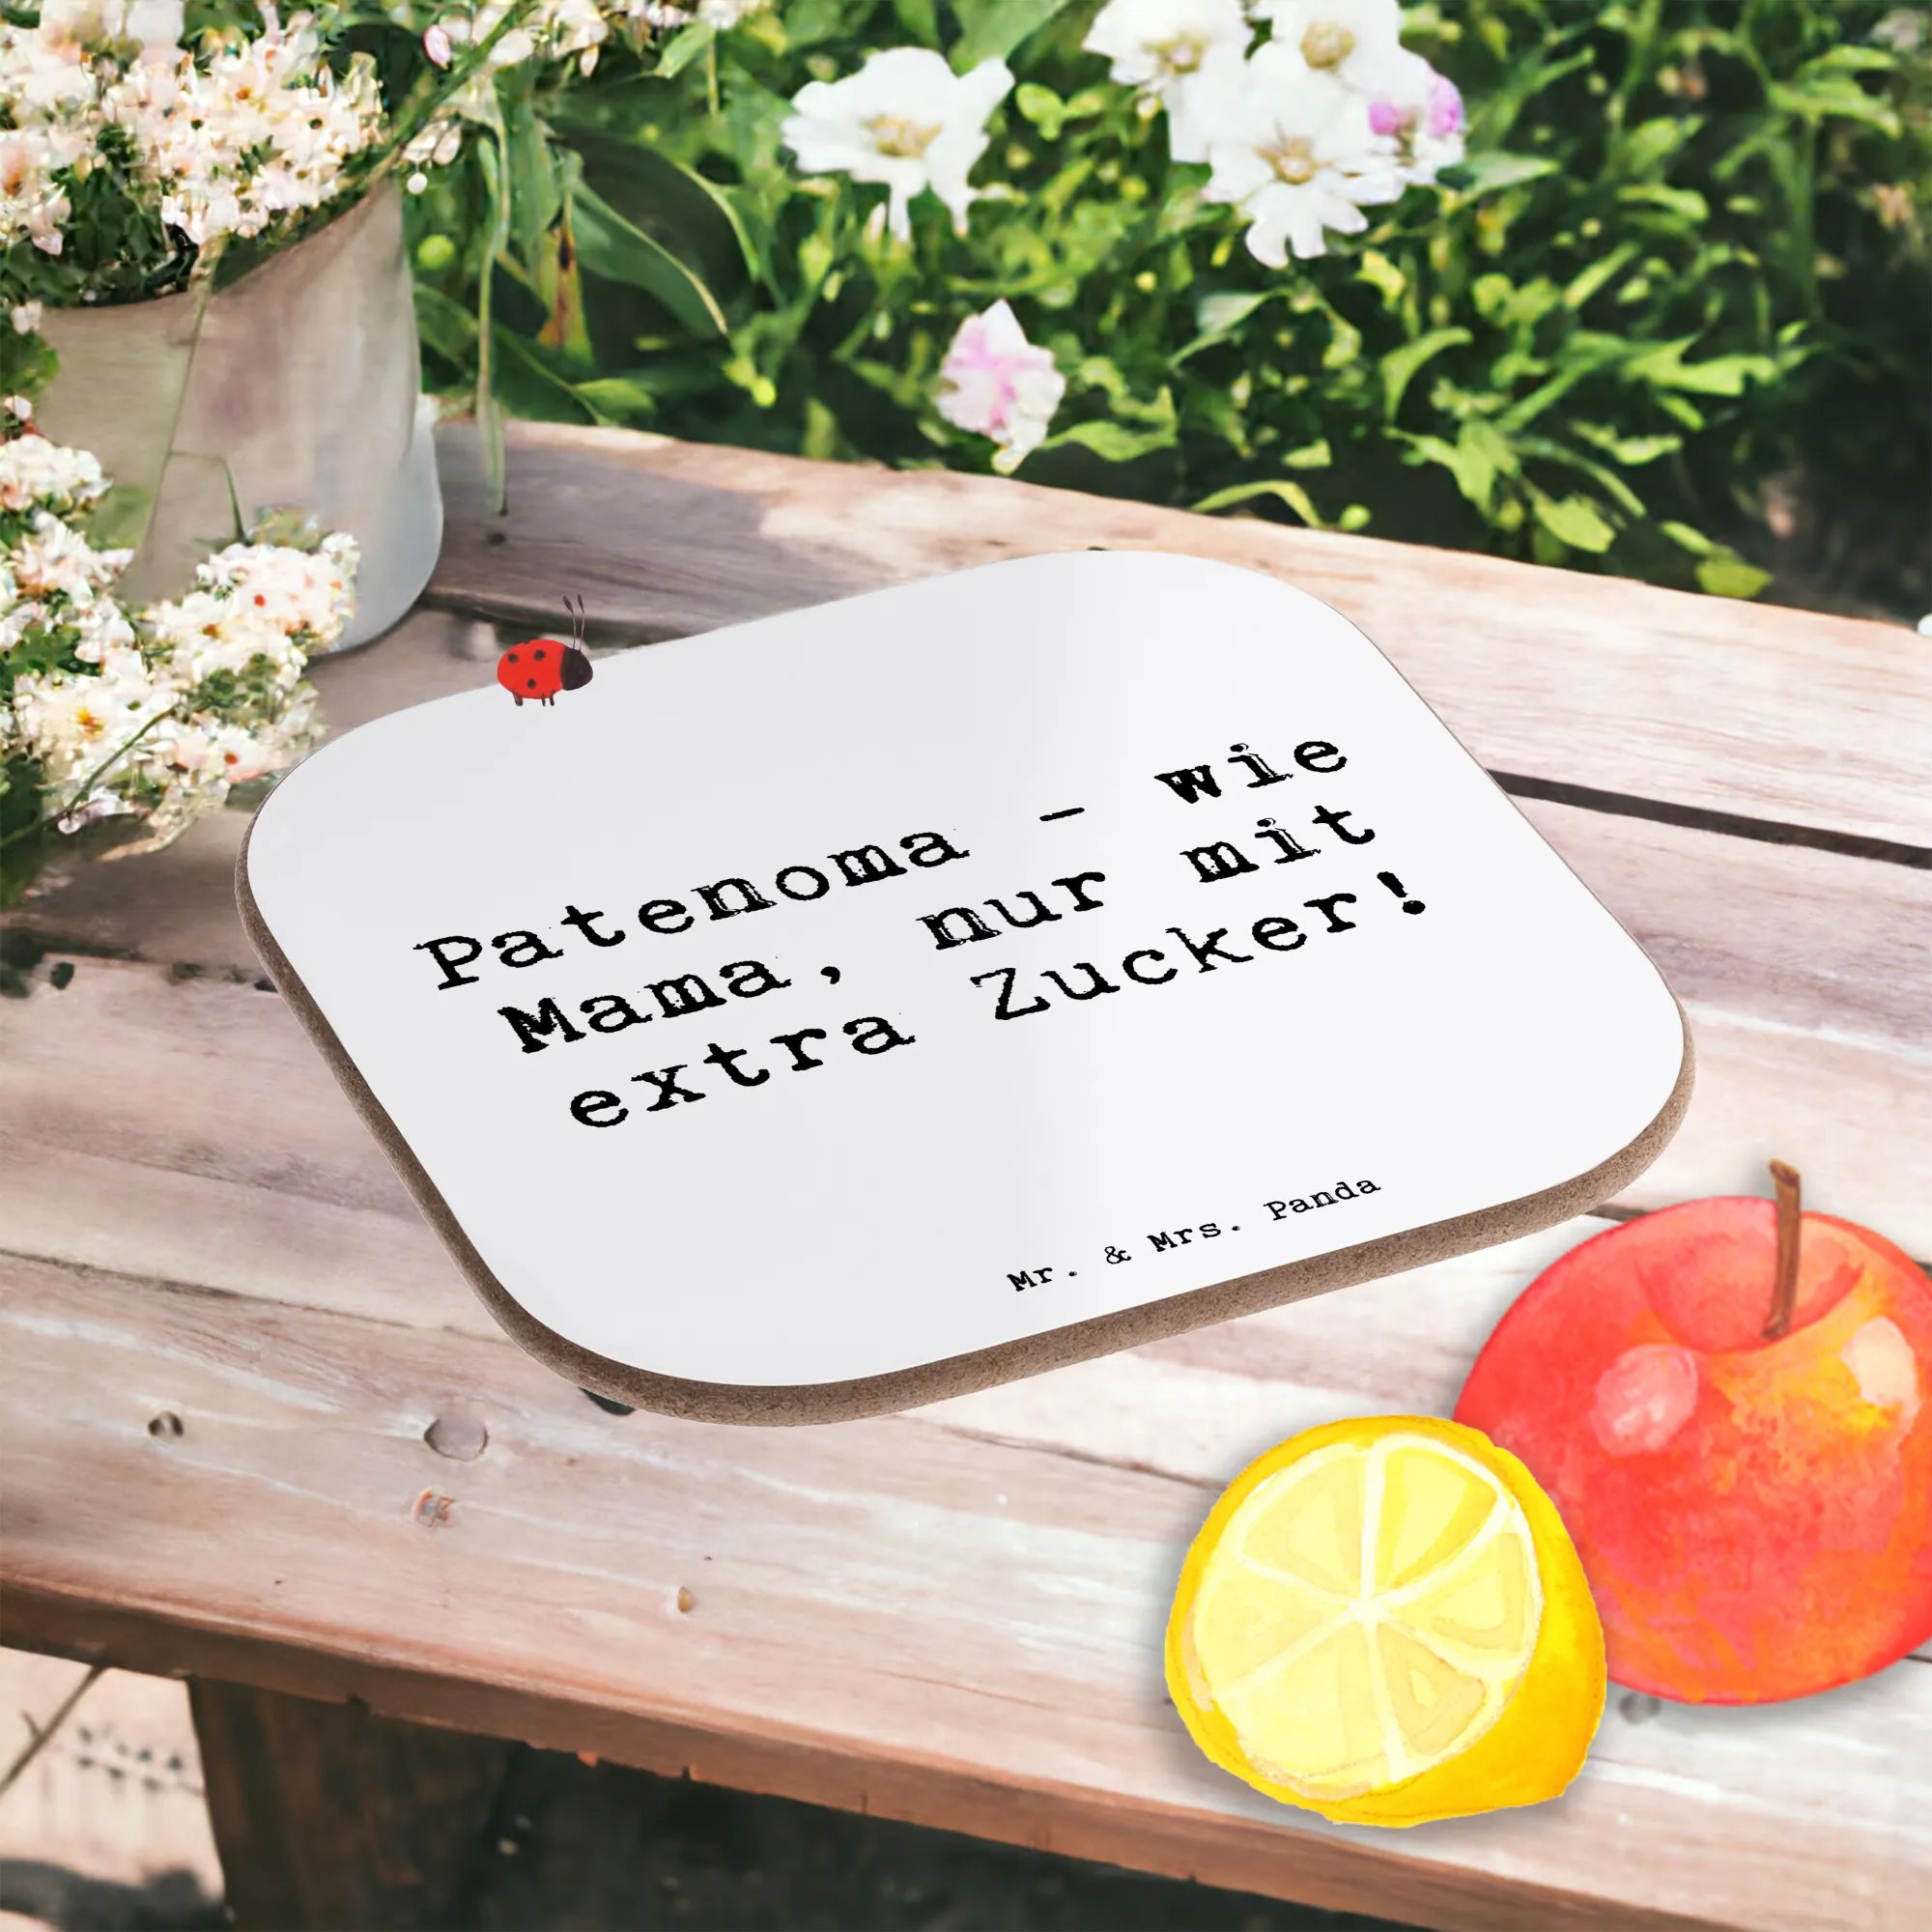 Patenoma - wie
Mama, nur mit
extra Zucker!
Mr. & Mrs. Panda